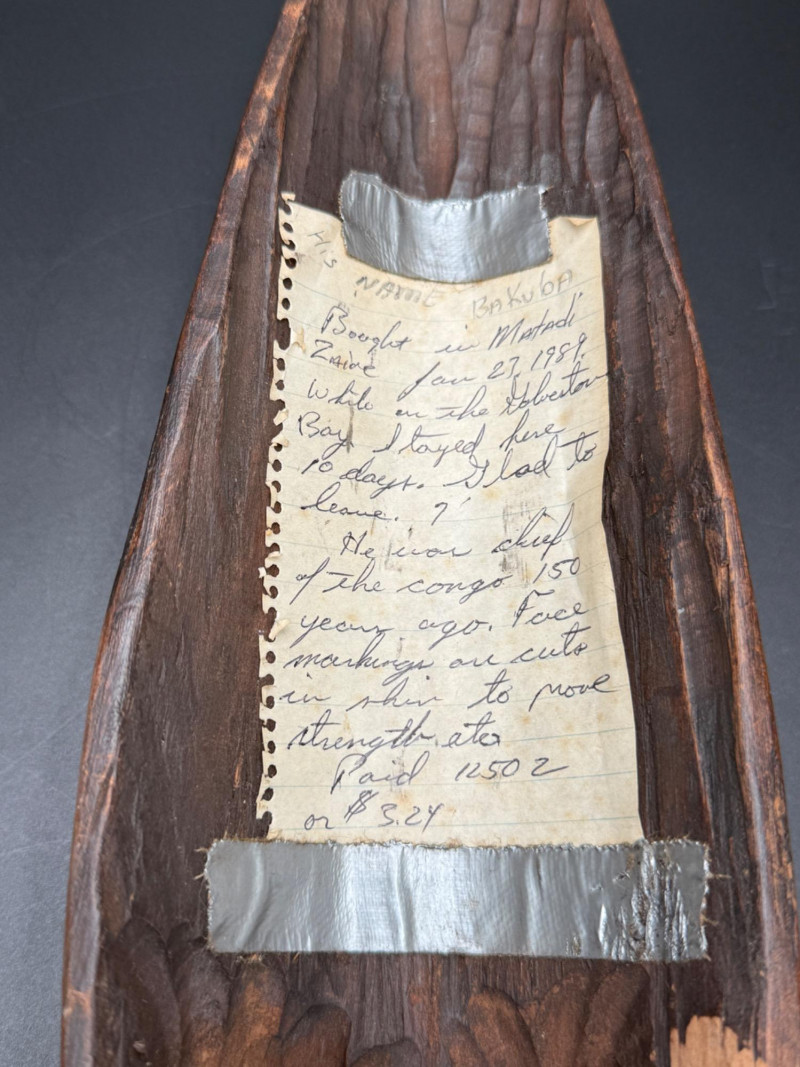 His NAME BAKUBA
Bought in Matadi
Zaire Jan 27, 1989.
While on the Galveston
Bay. Stayed here
10 days. Glad to
leave.
He was chief
of the congo 150
years ago. Face
markings are cuts
in skin to prove
strength etc
Paid 1250 Z
or $ 3.24